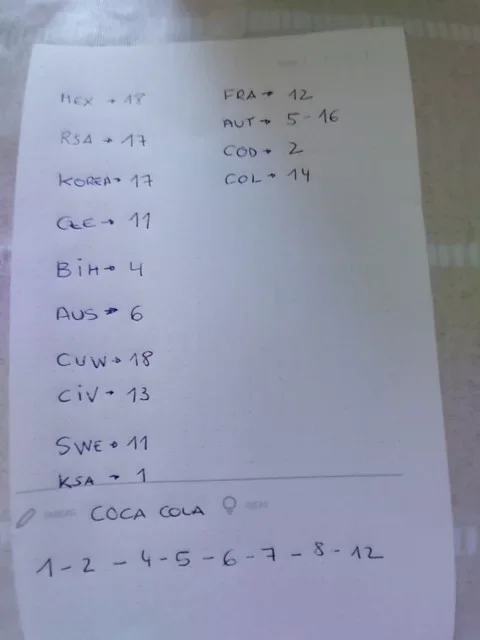 MEX → 18
RSA → 17
KOREA → 17
CZE → 11
BiH → 4
AUS → 6
CUW → 18
CiV → 13
SWE → 11
KSA → 1
FRA → 12
AUT → 5 - 16
COD → 2
COL → 14
COCA COLA
1 - 2 - 4 - 5 - 6 - 7 - 8 - 12